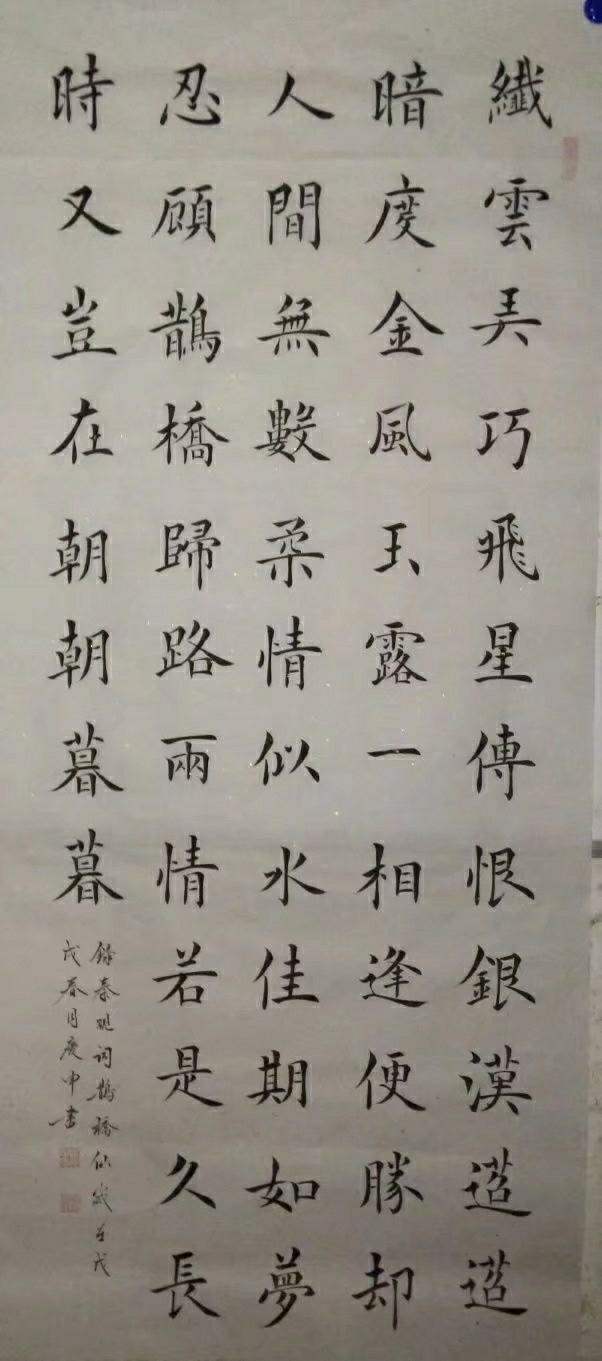 纖雲弄巧飛星傳恨銀漢迢迢
暗度金風玉露一相逢便勝却
人間無數柔情似水佳期如夢
忍顧鵲橋歸路兩情若是久長
時又豈在朝朝暮暮
錄秦觀词鵲橋仙歲在戊
戌春月慶中書